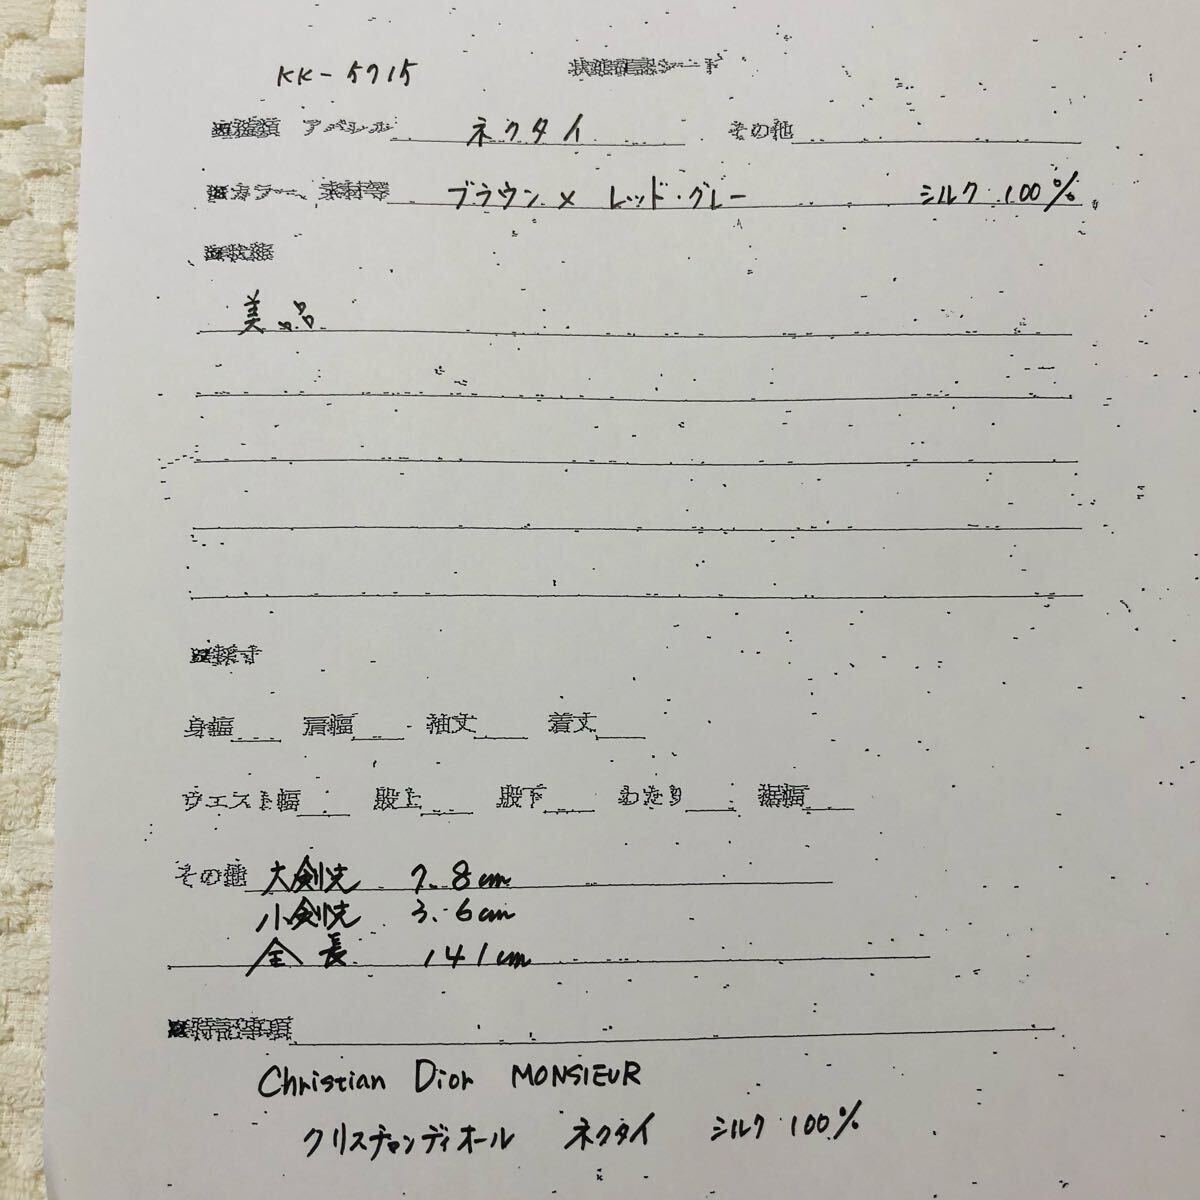 KK-5715 状態確認シート
■種類 アパレル ネクタイ その他
■カラー、素材等 ブラウン × レッド・グレー シルク 100%
■状態
美品
■採寸
身幅 肩幅 袖丈 着丈
ウエスト幅 股上 股下 わたり 裾幅
その他 大剣先 7.8cm
小剣先 3.6cm
全長 141cm
■特記事項
Christian Dior MONSIEUR
クリスチャンディオール ネクタイ シルク 100%